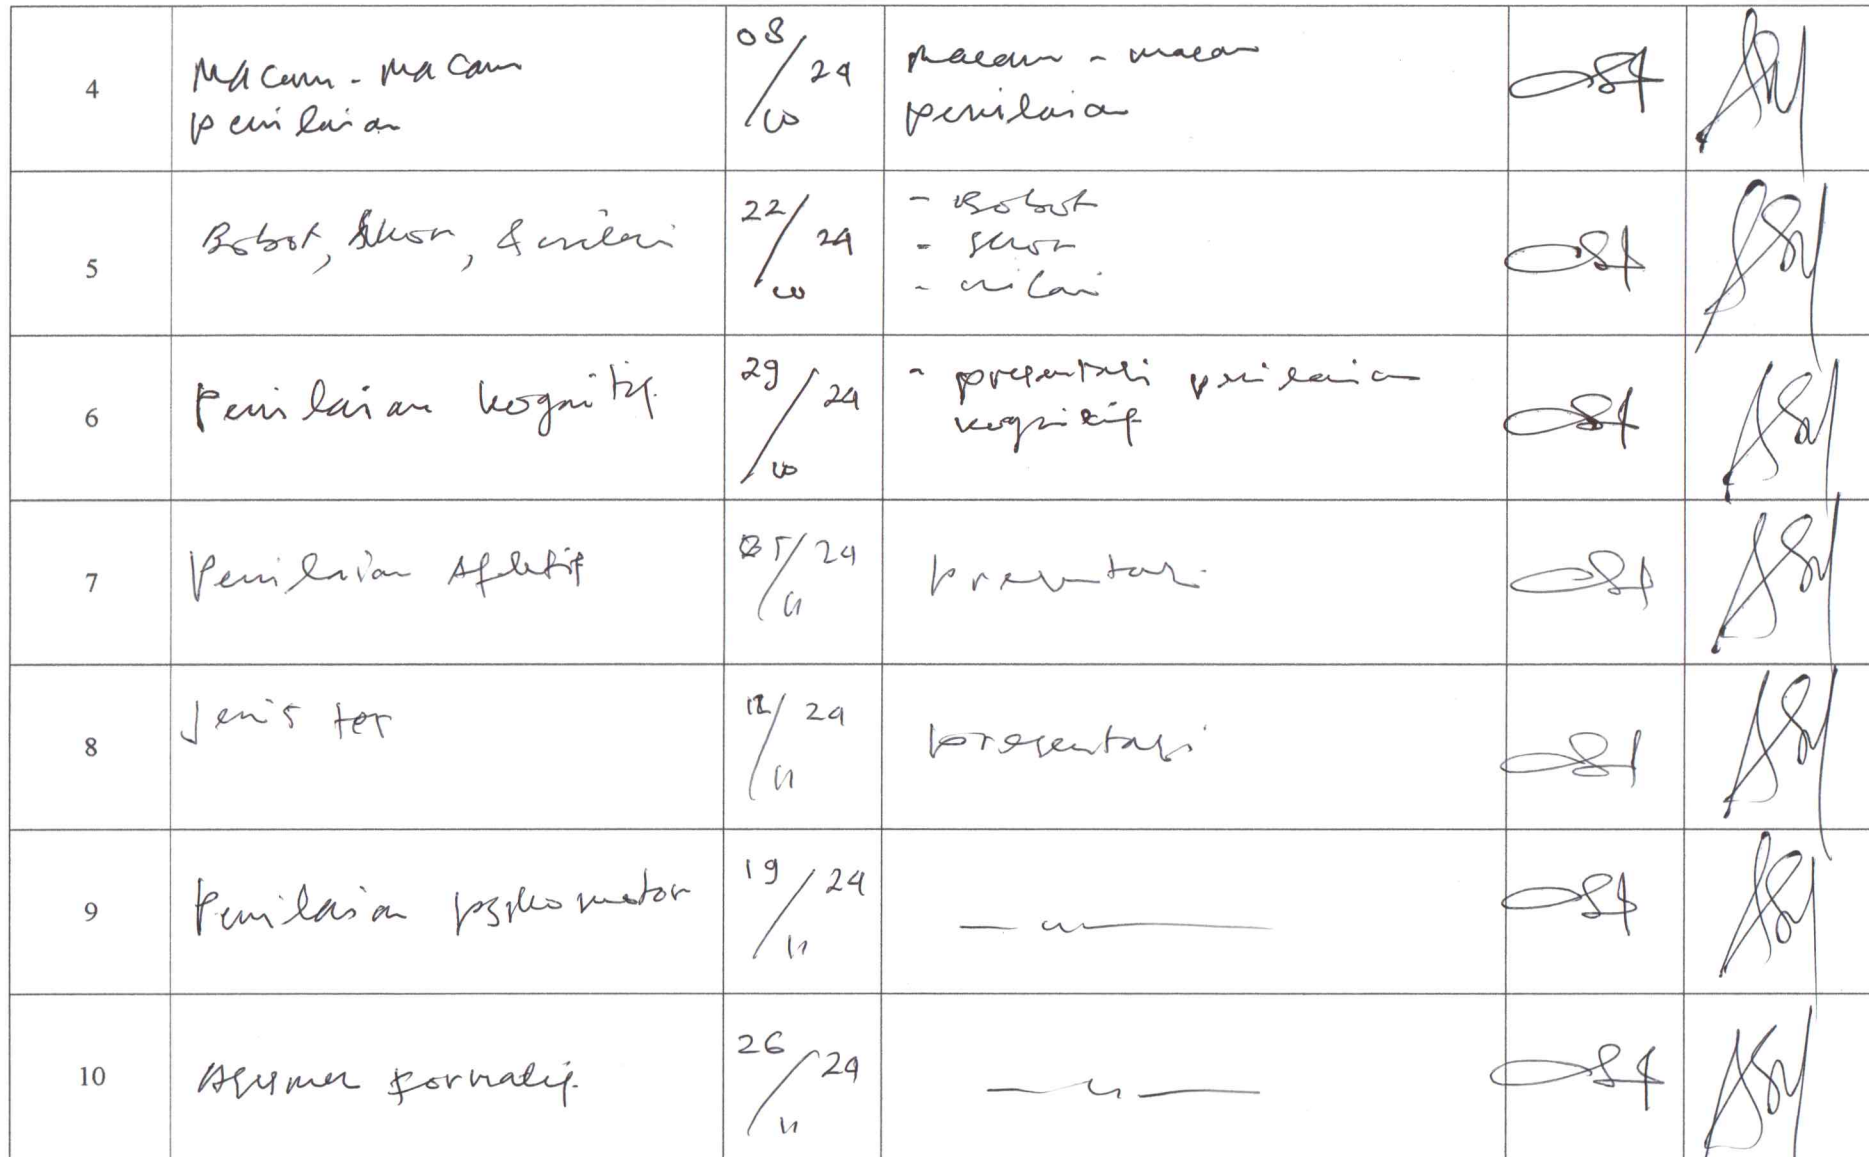 4
Macam - Macam
penilaian
08/10 24
Macam - macam
penilaian
5
Bobot, Skor, & nilai
22/10 24
- Bobot
- Skor
- nilai
6
Penilaian kognitif
29/10 24
- presentasi penilaian
kognitif
7
Penilaian Afektif
05/11 24
presentasi
8
Jenis tes
12/11 24
presentasi
9
Penilaian psikomotor
19/11 24
— " —
10
Asesmen formatif
26/11 24
— " —